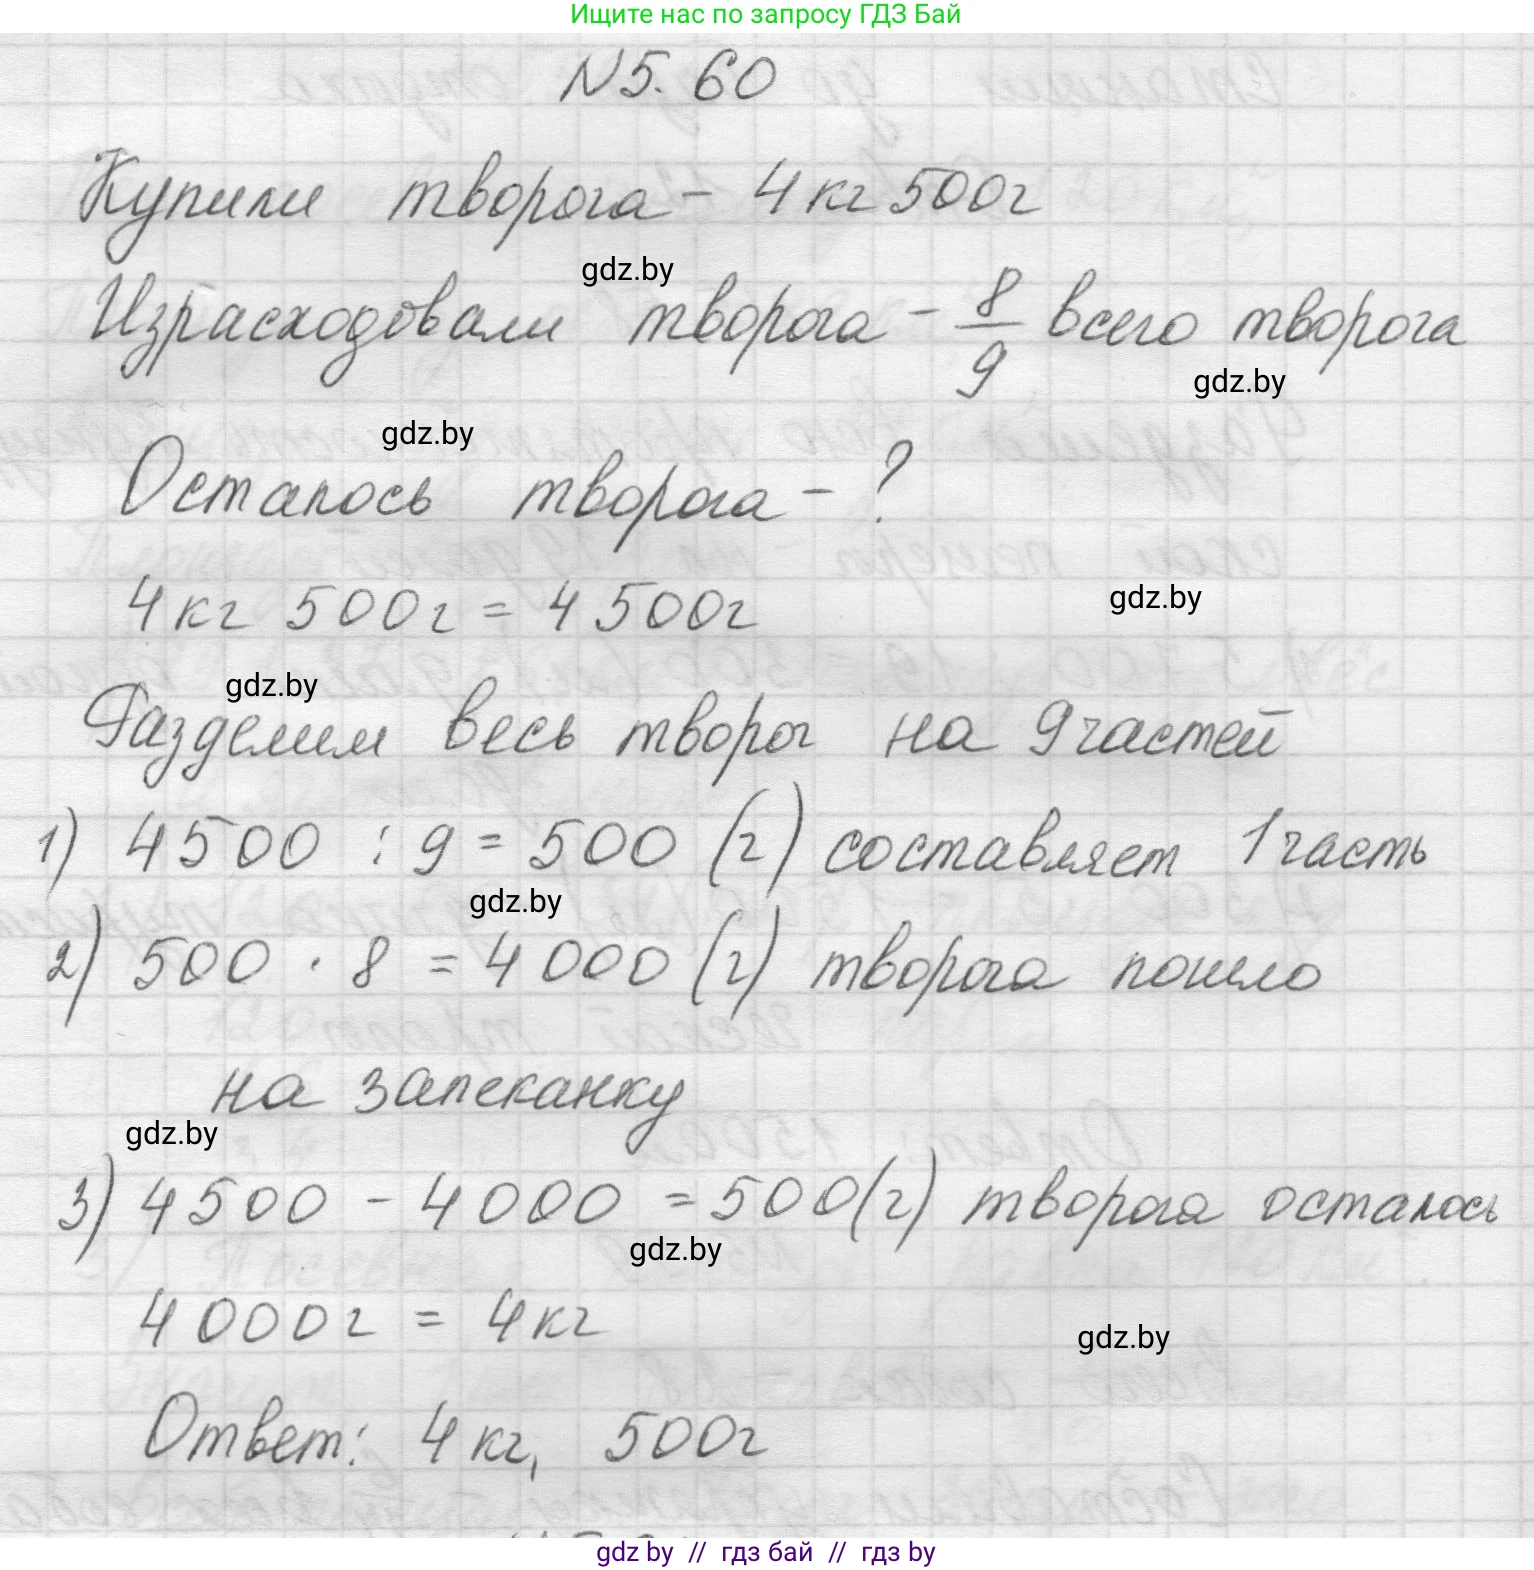 Ищите нас по запросу ГДЗ Бай
N5.60
Купили творога - 4 кг 500г
gdz.by
Израсходовали творога - 8/9 всего творога
gdz.by
gdz.by
Осталось творога - ?
4 кг 500г = 4 500г
gdz.by
gdz.by
Разделим весь творог на 9 частей
1) 4500 : 9 = 500 (г) составляет 1 часть
gdz.by
2) 500 · 8 = 4 000 (г) творога пошло
на запеканку
gdz.by
3) 4500 - 4000 = 500 (г) творога осталось
gdz.by
4000г = 4 кг
gdz.by
Ответ: 4 кг, 500г
gdz by // гдз бай // гдз by